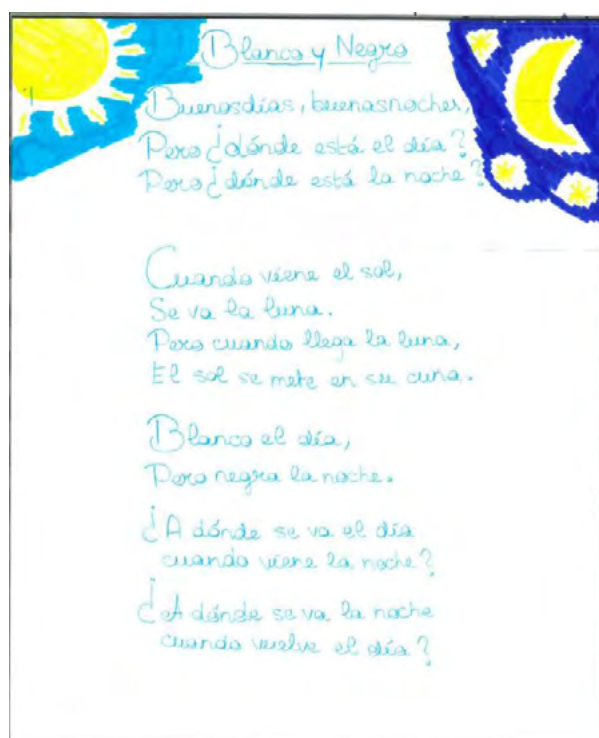 Blanco y Negro
Buenosdías, buenasnoches,
Pero ¿dónde está el día?
Pero ¿dónde está la noche?
Cuando viene el sol,
Se va la luna.
Pero cuando llega la luna,
El sol se mete en su cuna.
Blanco el día,
Pero negra la noche.
¿A dónde se va el día
cuando viene la noche?
¿A dónde se va la noche
cuando vuelve el día?